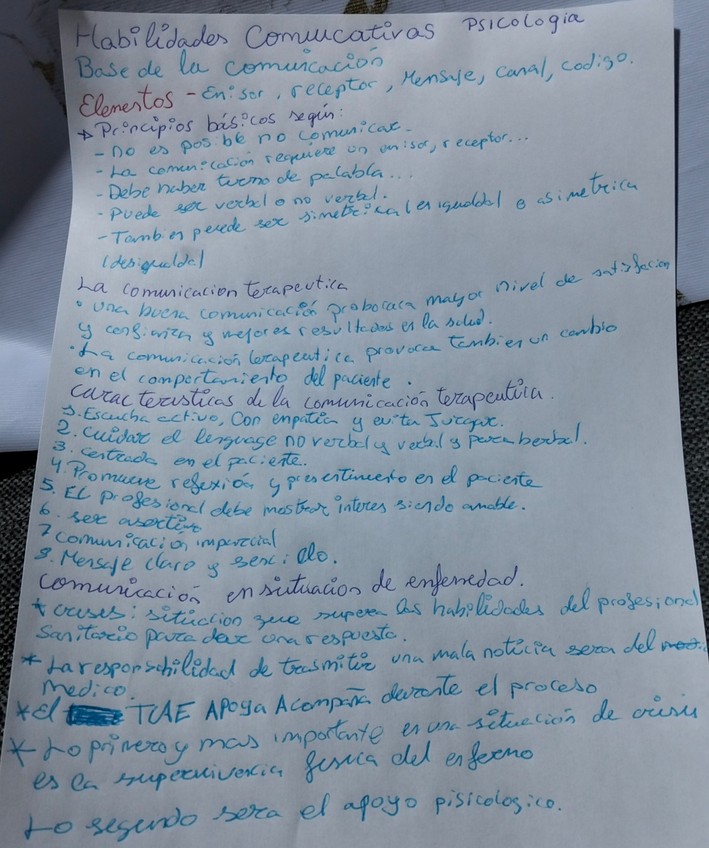 Habilidades Comuucativas Psicologia
Base de la comunicación
Elementos - Emisor, receptor, Mensaje, canal, codigo.
* Principios básicos según:
- no es posible no comunicar.
- La comunicación requiere un emisor, receptor...
- Debe haber turno de palabla...
- Puede ser verbal o no verbal.
- Tambien puede ser simetrica (en igualdad o asimetrica
(desigualda)
La comunicacion terapeutica
• una buena comunicación probocara mayor nivel de satisfacion
y confianza y mejores resultados en la salud.
• La comunicación terapeutica provoca tambien un cambio
en el comportamiento del paciente.
caracteristicas de la comunicación terapeutica.
1. Escucha activo, Con empatia y evita Juzgar.
2. Cuidar el lenguage no verbal y verbal y para berbal.
3. centrada en el paciente.
4. Promueve reflexion y presentimiento en el paciente
5. El profesional debe mostrar interes siendo amable.
6. ser asertivo
7 comunicación imparcial
8. Mensaje claro y sencillo.
comunicación en situacion de enfermedad.
* crisis: situacion que supera las habilidades del profesional
sanitario para dar una respuesta.
* La responsabilidad de trasmitir una mala noticia sera del
medico.
* el TCAE APoya Acompaña durante el proceso
* Lo primero y mas importante en una situación de crisis
es la supervivencia fisica del enfermo
Lo segundo sera el apoyo pisicologico.